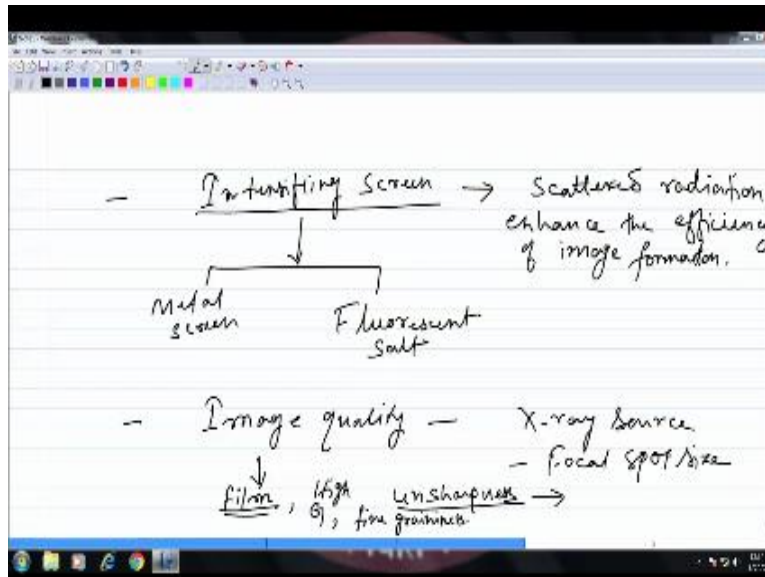 - Intensifiing screen → Scattered radiation
enhance the efficienc
of image formation.
Metal
screen
Fluorescent
Salt
- Image quality - X-ray source
- Focal spot size
film, High unsharpness →
G, fine graininess.